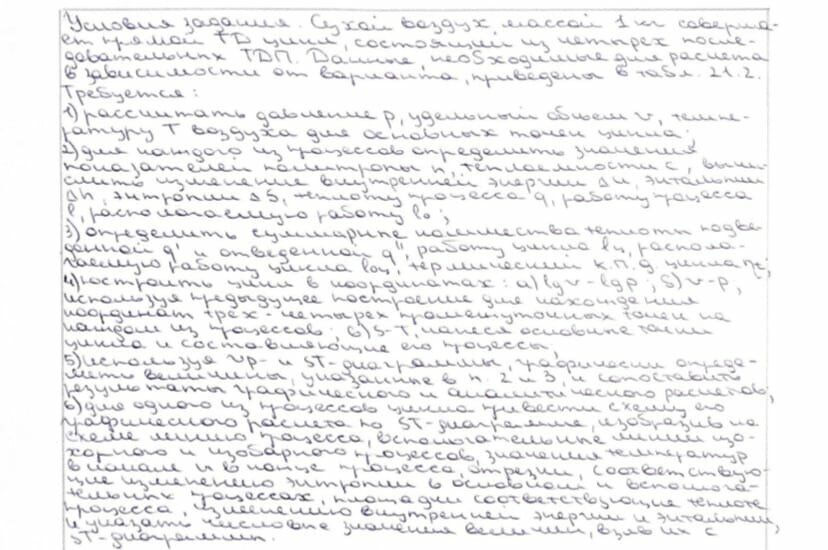 Условия задания. Сухой воздух массой 1 кг соверша-
ет прямой ТD цикл, состоящий из четырех после-
довательных ТДП. Данные, необходимые для расчета
в зависимости от варианта, приведены в табл. 21.2.
Требуется:
1) рассчитать давление p, удельный объем v, темпе-
ратуру T воздуха для основных точек цикла;
2) для каждого из процессов определить значения
показателей политропы n, теплоемкости c, вычи-
слить изменение внутренней энергии Δu, энтальпии
Δh, энтропии ΔS, теплоту процесса q, работу процесса
l, располагаемую работу l₀;
3) определить суммарные количества теплоты подве-
денной q' и отведенной q", работу цикла lц, распола-
гаемую работу цикла l₀ц, термический к.п.д. цикла ηt;
4) построить цикл в координатах: а) lgv-lgp; б) v-p,
используя предыдущее построение для нахождения
координат трех-четырех промежуточных точек на
каждом из процессов; в) S-T, нанеся основные точки
цикла и составляющие его процессы;
5) используя vp- и ST-диаграммы, графически опреде-
лить величины, указанные в п. 2 и 3, и сопоставить
результаты графического и аналитического расчетов;
6) для одного из процессов цикла привести схему его
графического расчета по ST-диаграмме, изобразив на
схеме линию процесса, вспомогательные линии изо-
хорного и изобарного процессов, значения температур
в начале и в конце процесса, отрезки, соответствую-
щие изменению энтропии в основном и вспомога-
тельных процессах, площадки соответствующие теплоте
процесса, изменению внутренней энергии и энтальпии,
и указать числовые значения величин, взяв их с
ST-диаграммы.